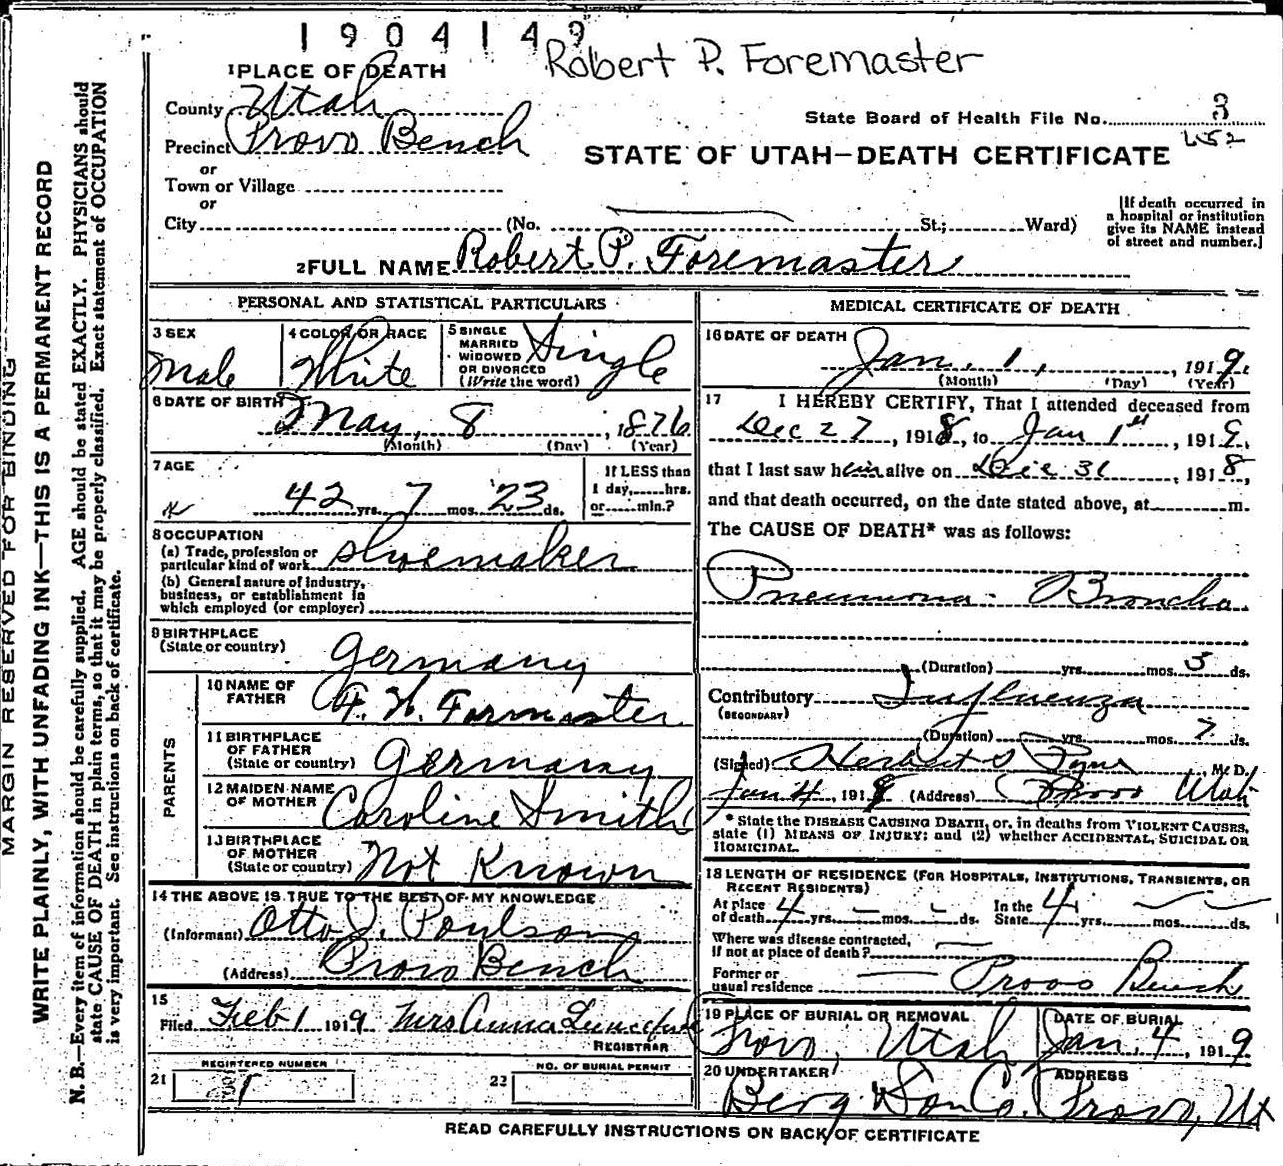 1904149
Robert P. Foremaster
1 PLACE OF DEATH
County Utah
Precinct Provo Bench
or
Town or Village
or
City (No. St.; Ward)
State Board of Health File No. 3
652
STATE OF UTAH—DEATH CERTIFICATE
[If death occurred in
a hospital or institution
give its NAME instead
of street and number.]
2 FULL NAME Robert P. Foremaster
PERSONAL AND STATISTICAL PARTICULARS
3 SEX
Male
4 COLOR OR RACE
White
5 SINGLE
MARRIED
WIDOWED
OR DIVORCED
(Write the word)
Single
6 DATE OF BIRTH
May 8, 1876
(Month) (Day) (Year)
7 AGE
42 yrs. 7 mos. 23 ds.
If LESS than
1 day, hrs.
or min.?
8 OCCUPATION
(a) Trade, profession or
particular kind of work Shoemaker
(b) General nature of industry,
business, or establishment in
which employed (or employer)
9 BIRTHPLACE
(State or country) Germany
PARENTS
10 NAME OF
FATHER F. W. Formaster
11 BIRTHPLACE
OF FATHER
(State or country) Germany
12 MAIDEN NAME
OF MOTHER Caroline Smith
13 BIRTHPLACE
OF MOTHER
(State or country) Not Known
14 THE ABOVE IS TRUE TO THE BEST OF MY KNOWLEDGE
(Informant) Otto J. Poulson
(Address) Provo Bench
15
Filed Feb 1 1919 Mrs Anna
REGISTRAR
REGISTERED NUMBER
21
NO. OF BURIAL PERMIT
22
MEDICAL CERTIFICATE OF DEATH
16 DATE OF DEATH
Jan. 1, 1919.
(Month) (Day) (Year)
17 I HEREBY CERTIFY, That I attended deceased from
Dec 27, 1918, to Jan 1st, 1919,
that I last saw him alive on Dec 31, 1918,
and that death occurred, on the date stated above, at m.
The CAUSE OF DEATH* was as follows:
Pneumonia - Broncho
(Duration) yrs. mos. 3 ds.
Contributory Influenza
(SECONDARY)
(Duration) yrs. mos. 7 ds.
(Signed) Herbert S Pyne, M. D.
Jan 4, 1918 (Address) Provo Utah
* State the DISEASE CAUSING DEATH, or, in deaths from VIOLENT CAUSES,
state (1) MEANS OF INJURY; and (2) whether ACCIDENTAL, SUICIDAL OR
HOMICIDAL.
18 LENGTH OF RESIDENCE (FOR HOSPITALS, INSTITUTIONS, TRANSIENTS, OR
RECENT RESIDENTS)
At place
of death 4 yrs. — mos. — ds.
In the
State 4 yrs. — mos. — ds.
Where was disease contracted,
if not at place of death? —
Former or
usual residence — Provo Bench
19 PLACE OF BURIAL OR REMOVAL
Provo, Utah
DATE OF BURIAL
Jan. 4, 1919
20 UNDERTAKER
Berg Son Co.
ADDRESS
Provo, Ut
READ CAREFULLY INSTRUCTIONS ON BACK OF CERTIFICATE
MARGIN RESERVED FOR BINDING
WRITE PLAINLY, WITH UNFADING INK—THIS IS A PERMANENT RECORD
N. B.—Every item of information should be carefully supplied. AGE should be stated EXACTLY. PHYSICIANS should
state CAUSE OF DEATH in plain terms, so that it may be properly classified. Exact statement of OCCUPATION
is very important. See instructions on back of certificate.